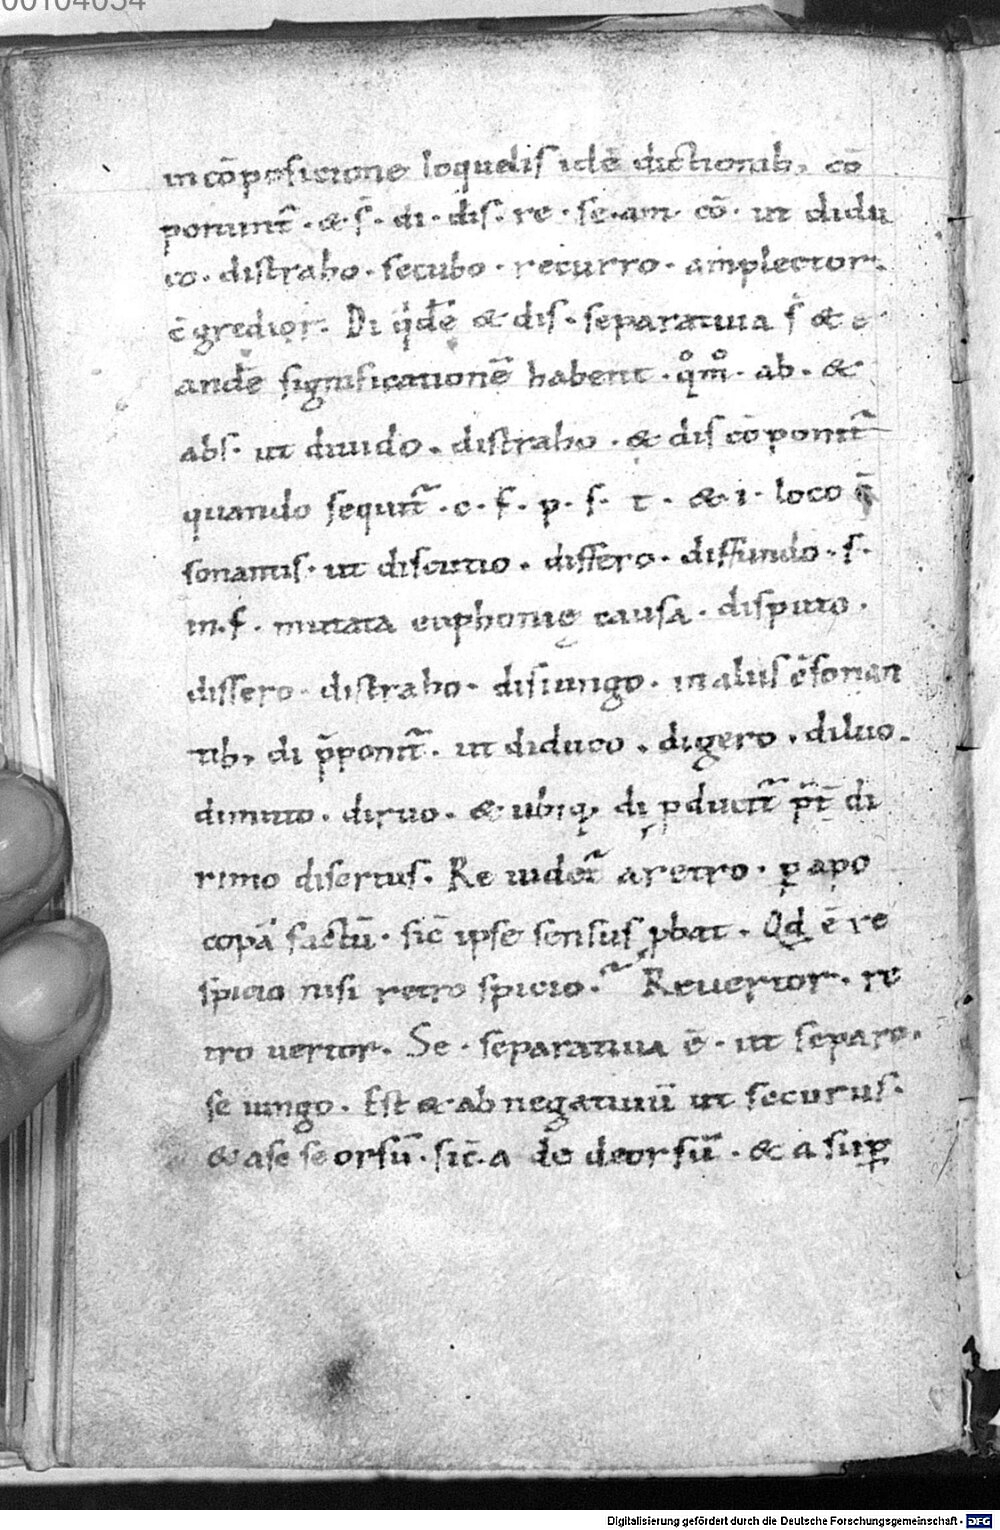 00104054
in cōposicione loquelis idē dictionib; cō
ponunt᷑ · & s̄ · di · dis · re · se · am · cō · ut didu
co · distraho · secubo · recurro · amplector ·
c̄gredior · Di qͥdē & dis · separatiua s̄ & e
andē significationē habent · qͦmͦ · ab · &
abs · ut diuido · distraho · & dis cōponit᷑
quando sequnt᷑ · c · f · p · s · t · & i · loco c̄
sonantis · ut discutio · differo · diffundo · s ·
in · f · mutata euphonię causa · disputo ·
dissero · distraho · disiungo · in aliis c̄sonan
tib; di p̄ponit᷑ · ut diduco · digero · diluo ·
dimitto · diruo · & ubiq; di ꝓducit᷑ p̄t̄ di
rimo disertus · Re uidet᷑ a retro · ꝑ apo
copā factū · sic̄ ipse sensus ꝓbat · Qd ē re
spicio nisi retro spicio · Reuertor · re
tro uertor · Se · separatiua ē · ut separo ·
se iungo · Est & abnegatiuū ut securus ·
& a se seorsū · sic̄ · a de deorsū · & a suꝑ
Digitalisierung gefördert durch die Deutsche Forschungsgemeinschaft - DFG